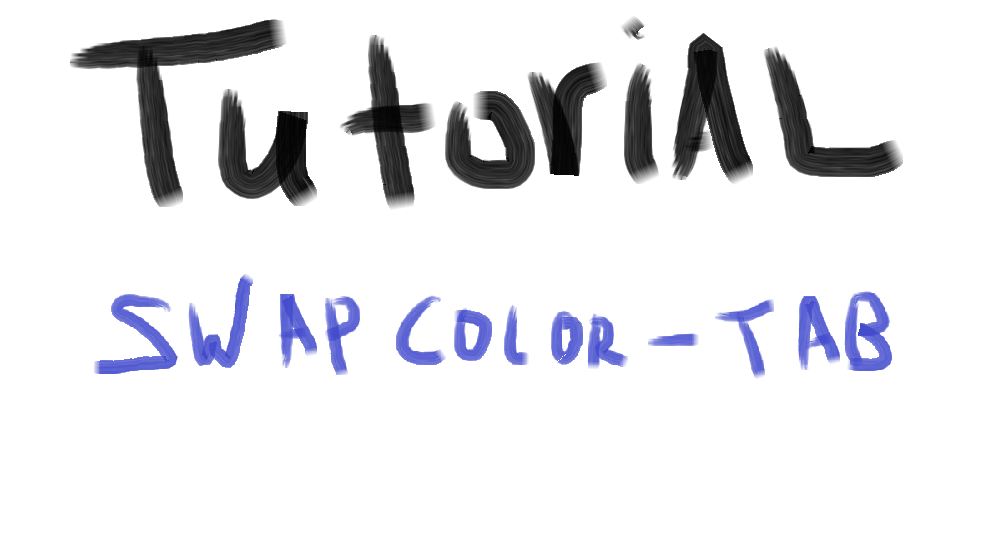 TutoriAL
SWAP COLOR - TAB